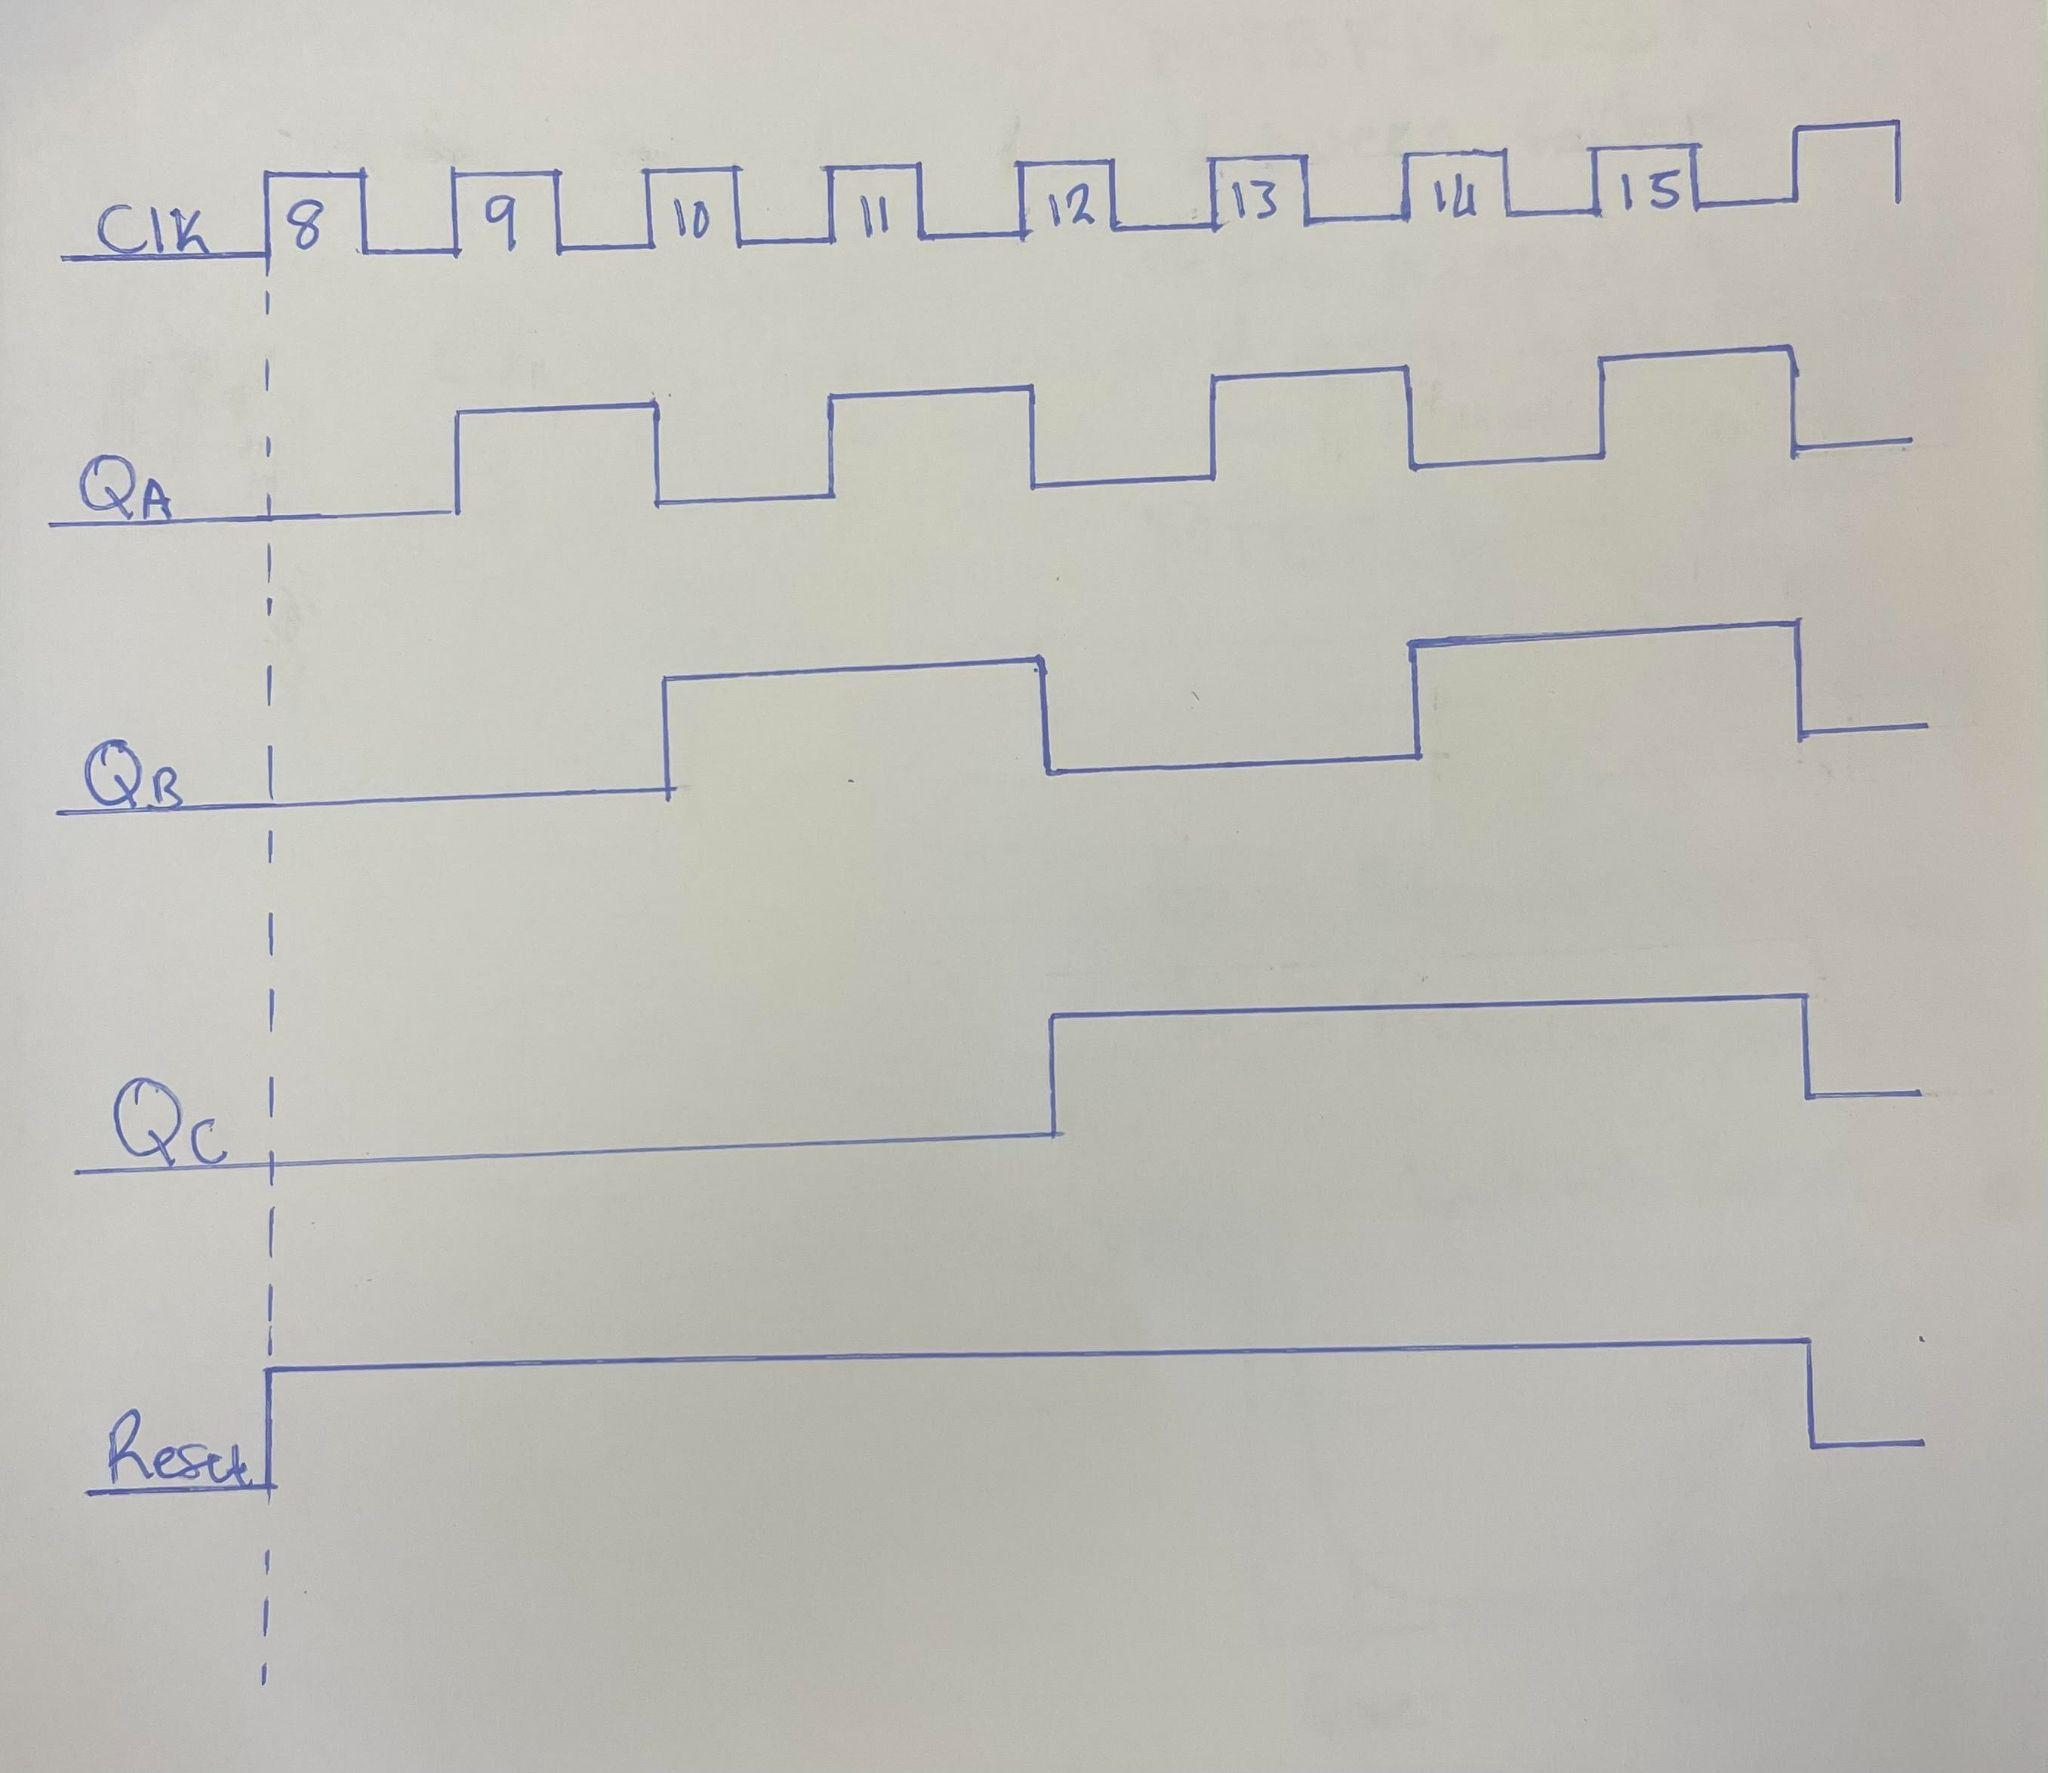 Clk 8 9 10 11 12 13 14 15
QA
QB
QC
Reset